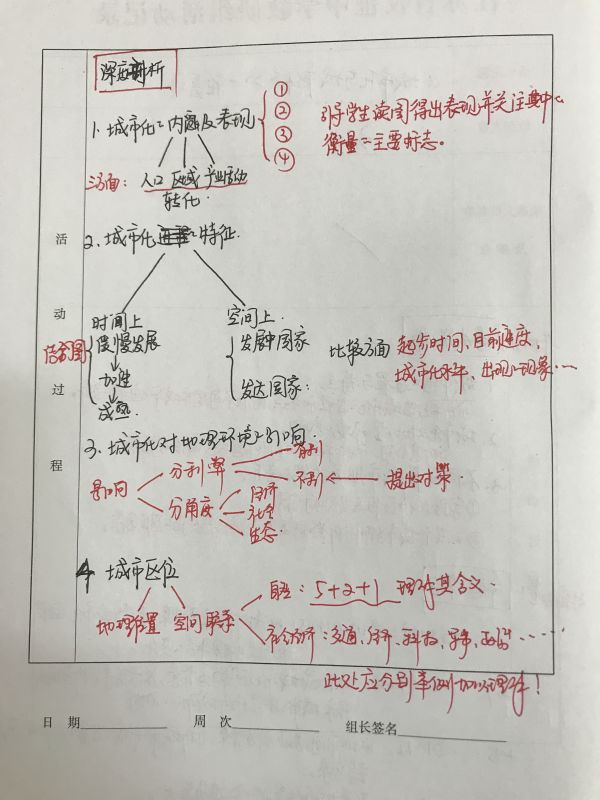 深度剖析
1、城市化之内涵及表现 ① ② ③ ④
引导学生读图得出表现并关注其中之
衡量之主要标志。
三方面： 人口 区域 产业活动
转化.
活动过程
2、城市化之特征.
时间上 空间上.
结合图
缓慢发展 发展中国家
加速
成熟. 发达国家：
比较方面 起步时间、目前速度、
城市化水平、出现之现象…
3、城市化对地理环境之影响
影响
分利弊 有利
不利 ← 提出对策.
分角度 经济
社会
生态
4 城市区位
地理位置 空间联系
自然：5+2+1 理解其含义.
社会经济：交通、经济、科技、军事、政治……
此处应分别举例加以理解！
日 期 周 次 组长签名